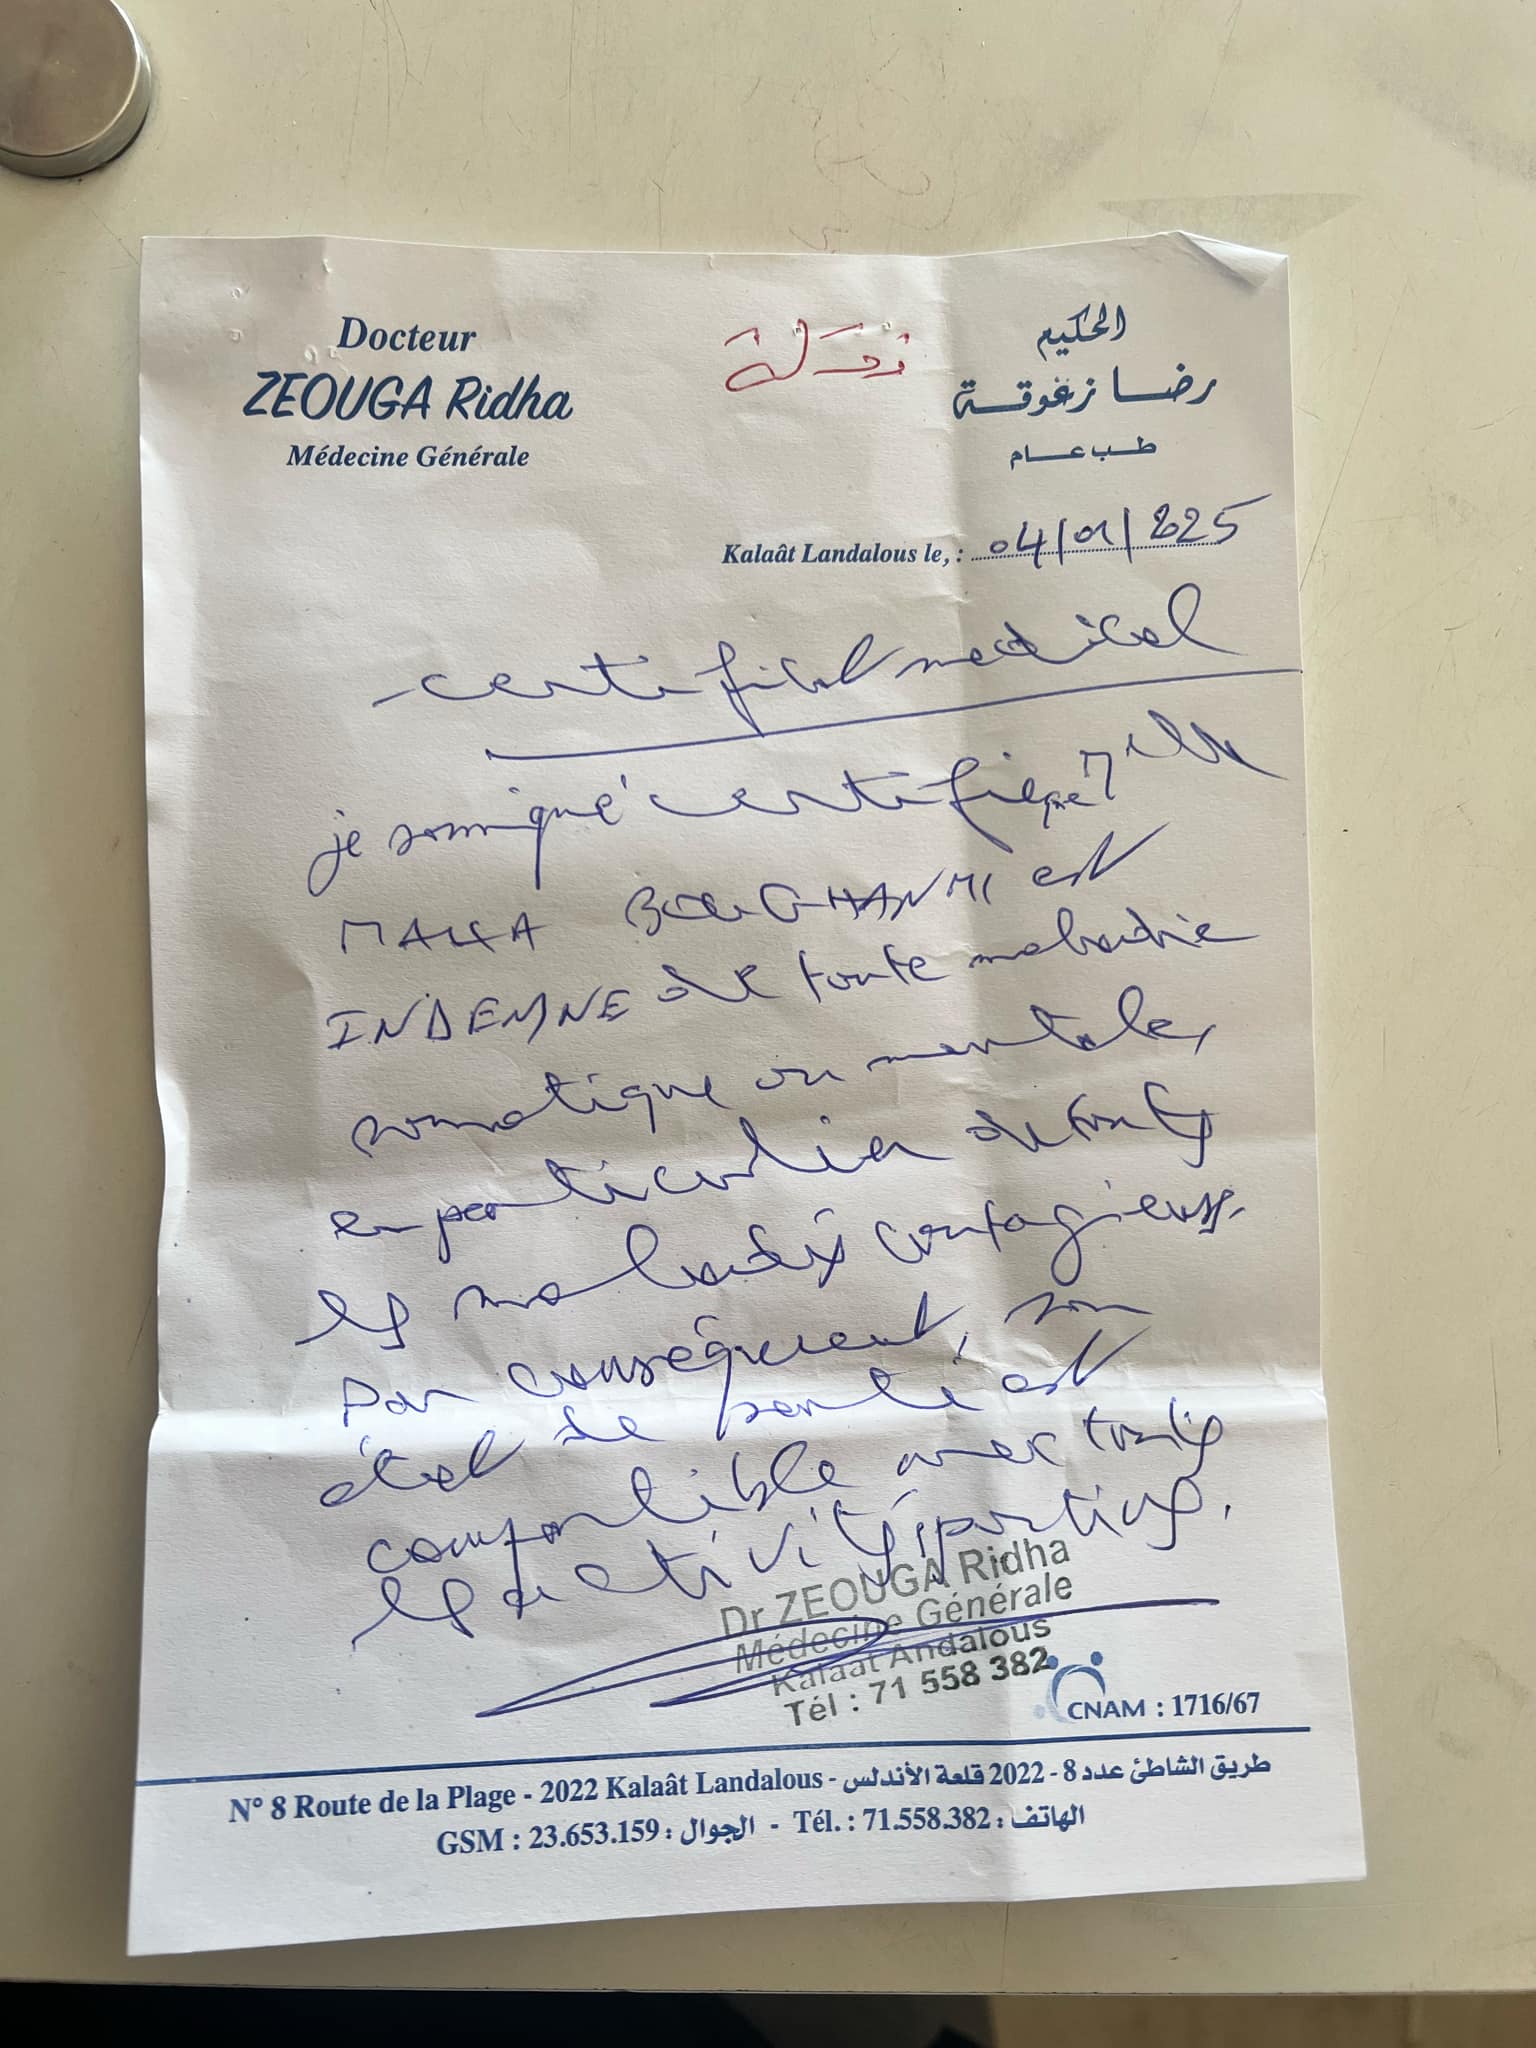 Docteur
ZEOUGA Ridha
Médecine Générale
الحكيم
رضا زغوقة
طب عام
Kalaât Landalous le, : 04/01/2025
certificat medical
je soussigné certifie que Mlle
MALKA BOUGHANMI est
INDEMNE de toute maladie
somatique ou mentale,
en particulier de toutes
les maladies contagieuses.
Par conséquent, son
état de santé est
compatible avec toutes
les activités sportives.
Dr ZEOUGA Ridha
Médecine Générale
Kalaat Andalous
Tél : 71 558 382
CNAM : 1716/67
N° 8 Route de la Plage - 2022 Kalaât Landalous - طريق الشاطئ عدد 8 - 2022 قلعة الأندلس
GSM : 23.653.159 : الجوال - Tél. : 71.558.382 : الهاتف